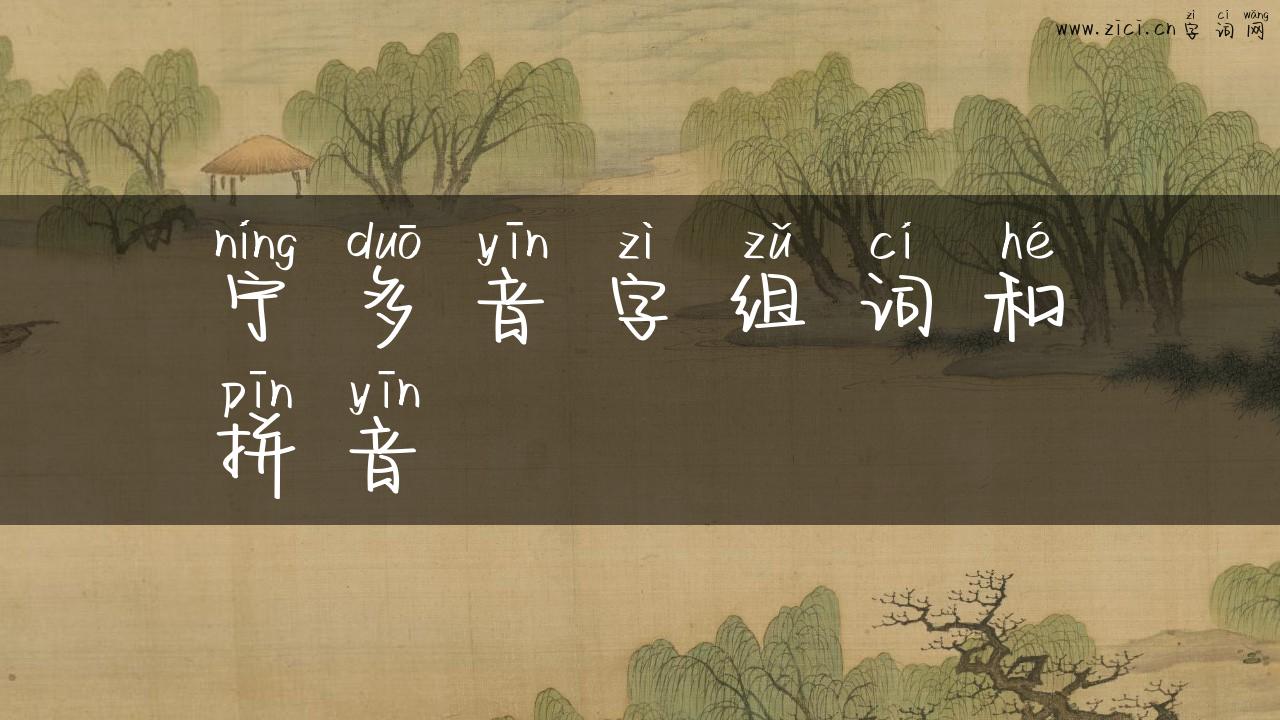 zì cí wǎng
www.zici.cn 字词网
níng duō yīn zì zǔ cí hé
宁多音字组词和
pīn yīn
拼音